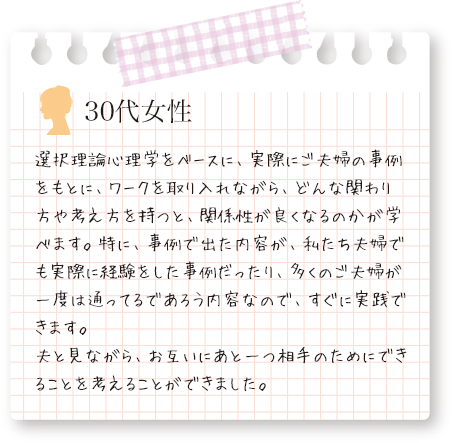 30代女性
選択理論心理学をベースに、実際にご夫婦の事例
をもとに、ワークを取り入れながら、どんな関わり
方や考え方を持つと、関係性が良くなるのかが学
べます。特に、事例で出た内容が、私たち夫婦で
も実際に経験をした事例だったり、多くのご夫婦が
一度は通ってるであろう内容なので、すぐに実践で
きます。
夫と見ながら、お互いにあと一つ相手のためにでき
ることを考えることができました。